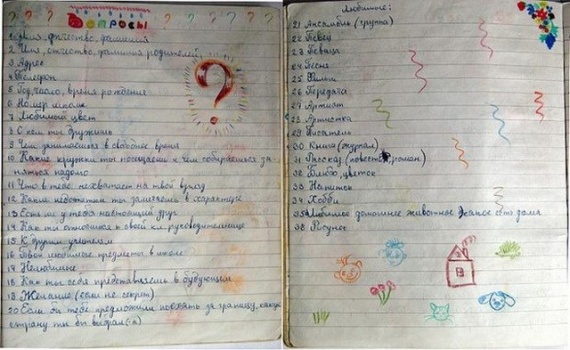 Вопросы
1 Имя, отчество, фамилия
2 Имя, отчество, фамилия родителей
3 Адрес
4 Телефон
5 Год, число, время рождения
6 Номер школы
7 Любимый цвет
8 С кем ты дружишь
9 Чем занимаешься в свободное время
10 Какие кружки ты посещаешь и чем собираешься за
няться надолго
11 Что в тебе нехватает на твой взгляд
12 Какие недостатки ты замечаешь в характере
13 Есть ли у тебя настоящий друг
14 Как ты относишься к своей кл. руководительнице
15 К другим учителям
16 Твои любимые предметы в школе
17 Нелюбимые
18 Как ты себя представляешь в будующем
19 Желание (если не секрет)
20 Если бы тебе предложили поехать за границу, какую
страну ты бы выбрал(-а)
Любимое:
21 Ансамбль (группа)
22 Певец
23 Певица
24 Песня
25 Фильм
26 Передача
27 Артист
28 Артистка
29 Писатель
30 Книга (журнал)
31 Рассказ (повесть, роман)
32 Блюдо, цветок
33 Напиток
34 Хобби
35 Любимое домашнее животное Какое есть дома
36 Рисунок